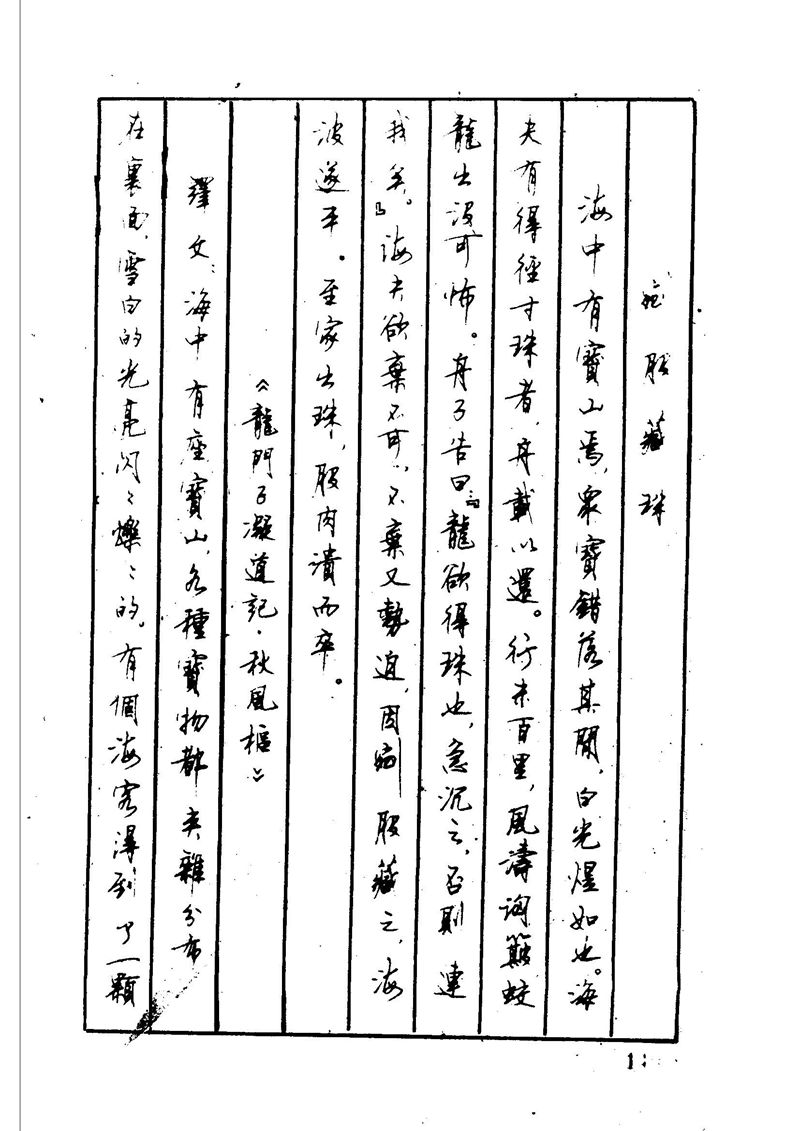 股藏珠
海中有寶山焉,衆寶錯落其間,白光煜如也。海
夫有得徑寸珠者,舟載以還。行未百里,風濤洶簸蛟
龍出沒可怖。舟子告曰:『龍欲得珠也,急沉之,否則連
我矣。』海夫欲棄不可,不棄又勢迫,因剜股藏之,海
波遂平。至家出珠,股肉潰而卒。
《龍門子凝道記·秋風樞》
譯文:海中有座寶山,各種寶物都夾雜分布
在裏面,雪白的光亮閃閃燦燦的。有個海客得到了一顆
1